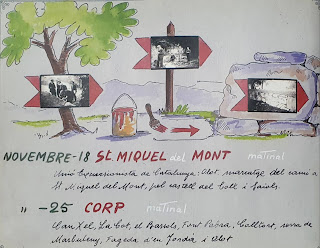 NOVEMBRE-18 St. MIQUEL del MONT matinal
Unió Excursionista de Catalunya, Olot, marcatge del camí a
St Miquel del Mont, pel castell del Coll i
" -25 CORP matinal
Can Xel, La Cot, el Font Pobra,
Fageda d'en Jordà i Olot